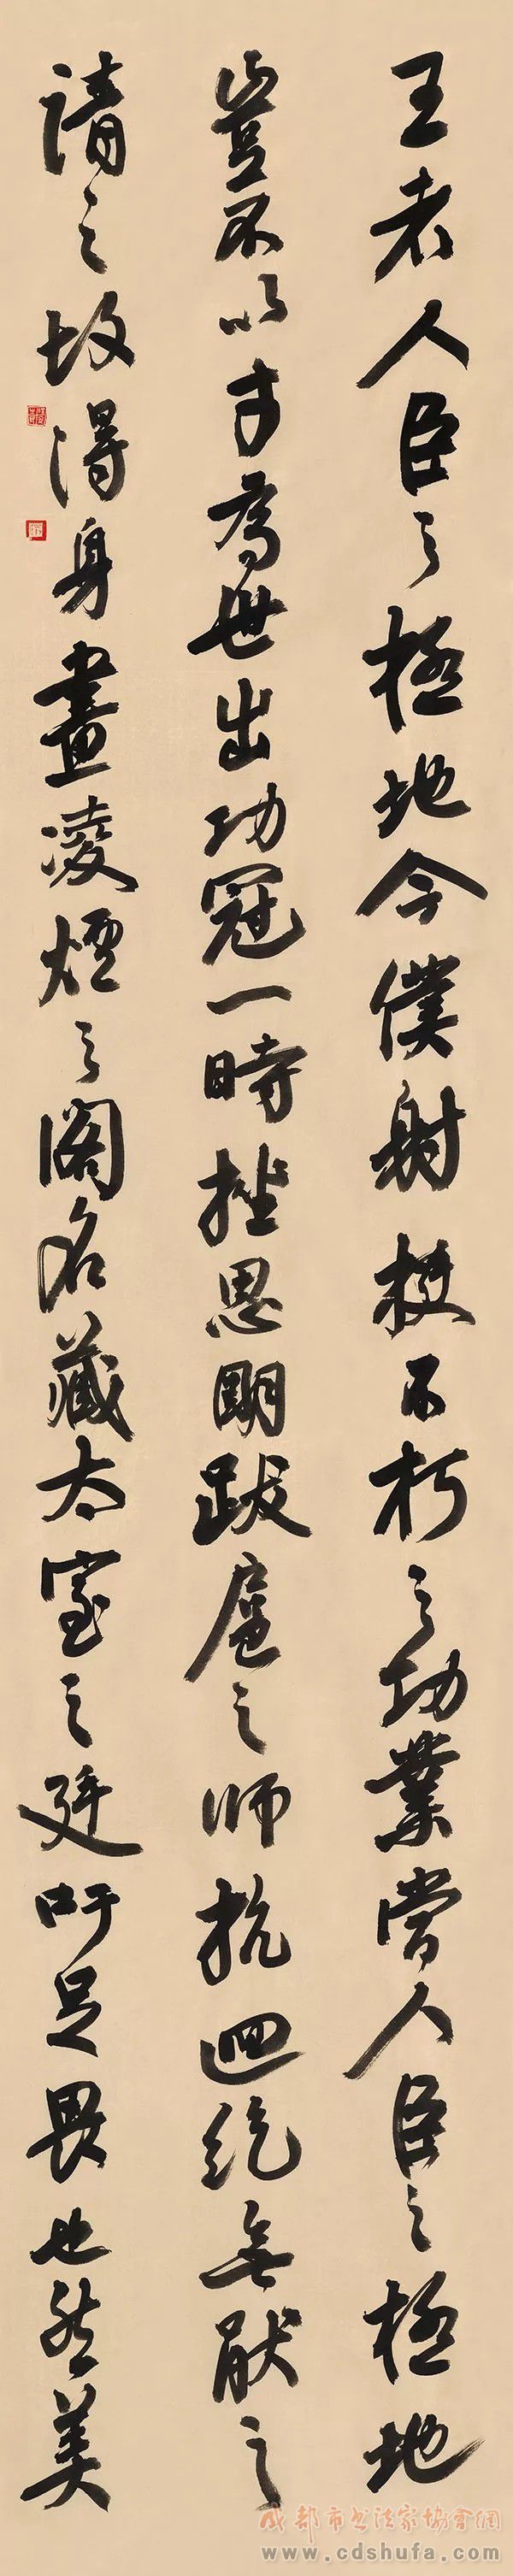 王者人臣之極地今僕射挺不朽之功業當人臣之極地
豈不以才為世出功冠一時挫思明跋扈之師抗迴紇無厭之
請之故得身畫凌煙之閣名藏太室之廷吁足畏也然美
成都市书法家協會網
www.cdshufa.com